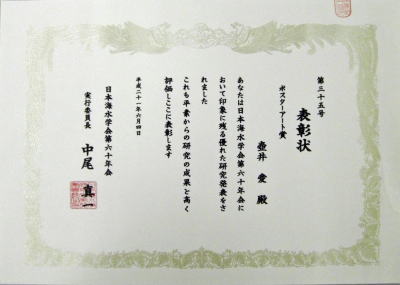 第三十五号
表彰状
ポスターアート賞
壺井 愛 殿
あなたは日本海水学会第六十年会に
おいて印象に残る優れた研究発表をさ
れました
これも平素からの研究の成果と高く
評価しここに表彰します
平成二十一年六月四日
日本海水学会第六十年会
実行委員長 中尾 真一